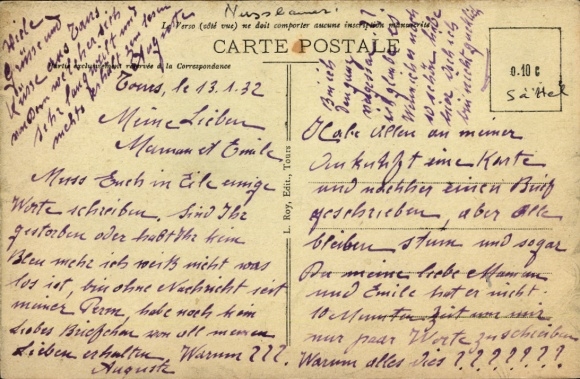 Nussbaumer!
Le Verso (côté vue) ne doit comporter aucune inscription manuscrite
CARTE POSTALE
Partie exclusivement réservée à la Correspondance
Viele
Grüsse und
Küsse aus Tours
von Dem welcher sich
sehr langweilt und
nichts erhält zu lesen
Auguste
Tours, le 13.1.32
Meine Lieben
Maman et Emile
Muss Euch in Eile einige
Worte schreiben. Sind Ihr
gestorben oder habt Ihr kein
Bleu mehr ich weiß nicht was
los ist, bin ohne Nachricht seit
meiner Perm, habe noch kein
Liebes Briefchen von all meinen
Lieben erhalten. Warum ???
Auguste
L. Roy, Edit., Tours
Bin ich
Ich glaube
so schön habe
hier Doch ich
bin nicht
0.10 c
Habe Allen an meiner
Ankunft eine Karte
und nachher einen Brief
geschrieben, aber Alle
bleiben stum und sogar
Du meine liebe Maman
und Emile hat er nicht
10 Minuten Zeit um mir
nur paar Worte zu schreiben
Warum alles dies ????????